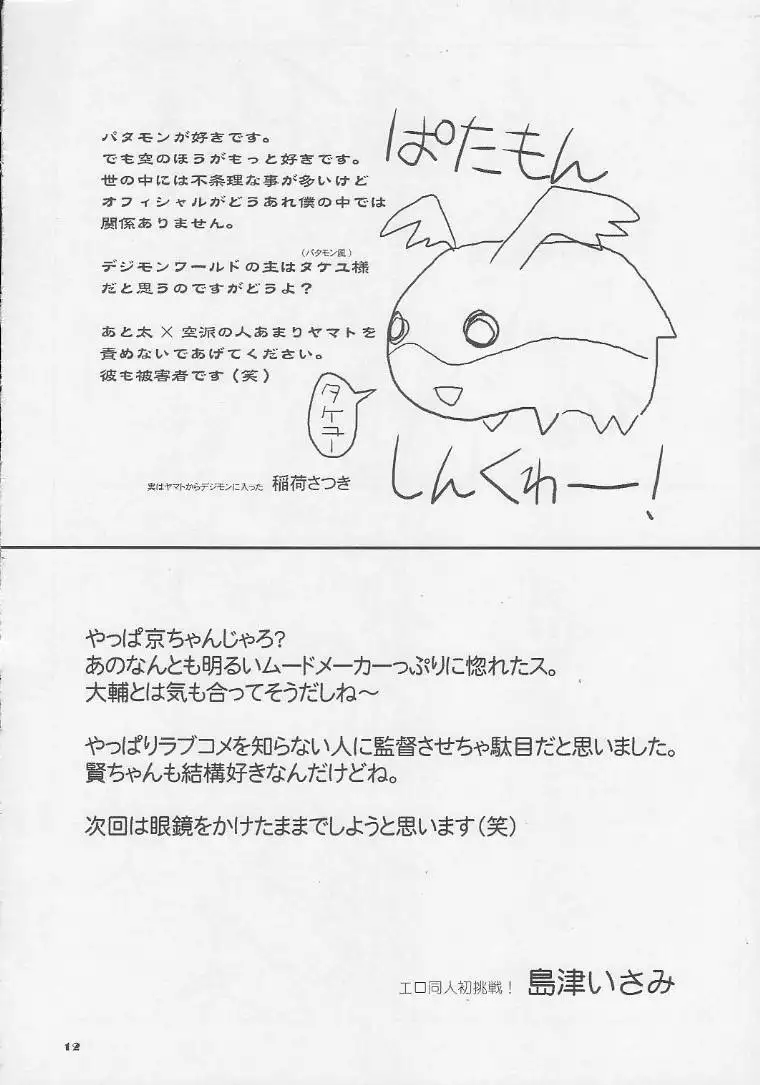 パタモンが好きです。
でも空のほうがもっと好きです。
世の中には不条理な事が多いけど
オフィシャルがどうあれ僕の中では
関係ありません。
(パタモン風)
デジモンワールドの主はタケユ様
だと思うのですがどうよ？
あと太×空派の人あまりヤマトを
責めないであげてください。
彼も被害者です（笑）
実はヤマトからデジモンに入った 稲荷さつき
ぱたもん
タケユー
しんくわー！
やっぱ京ちゃんじゃろ？
あのなんとも明るいムードメーカーっぷりに惚れたス。
大輔とは気も合ってそうだしね～
やっぱりラブコメを知らない人に監督させちゃ駄目だと思いました。
賢ちゃんも結構好きなんだけどね。
次回は眼鏡をかけたままでしようと思います（笑）
エロ同人初挑戦！ 島津いさみ
12